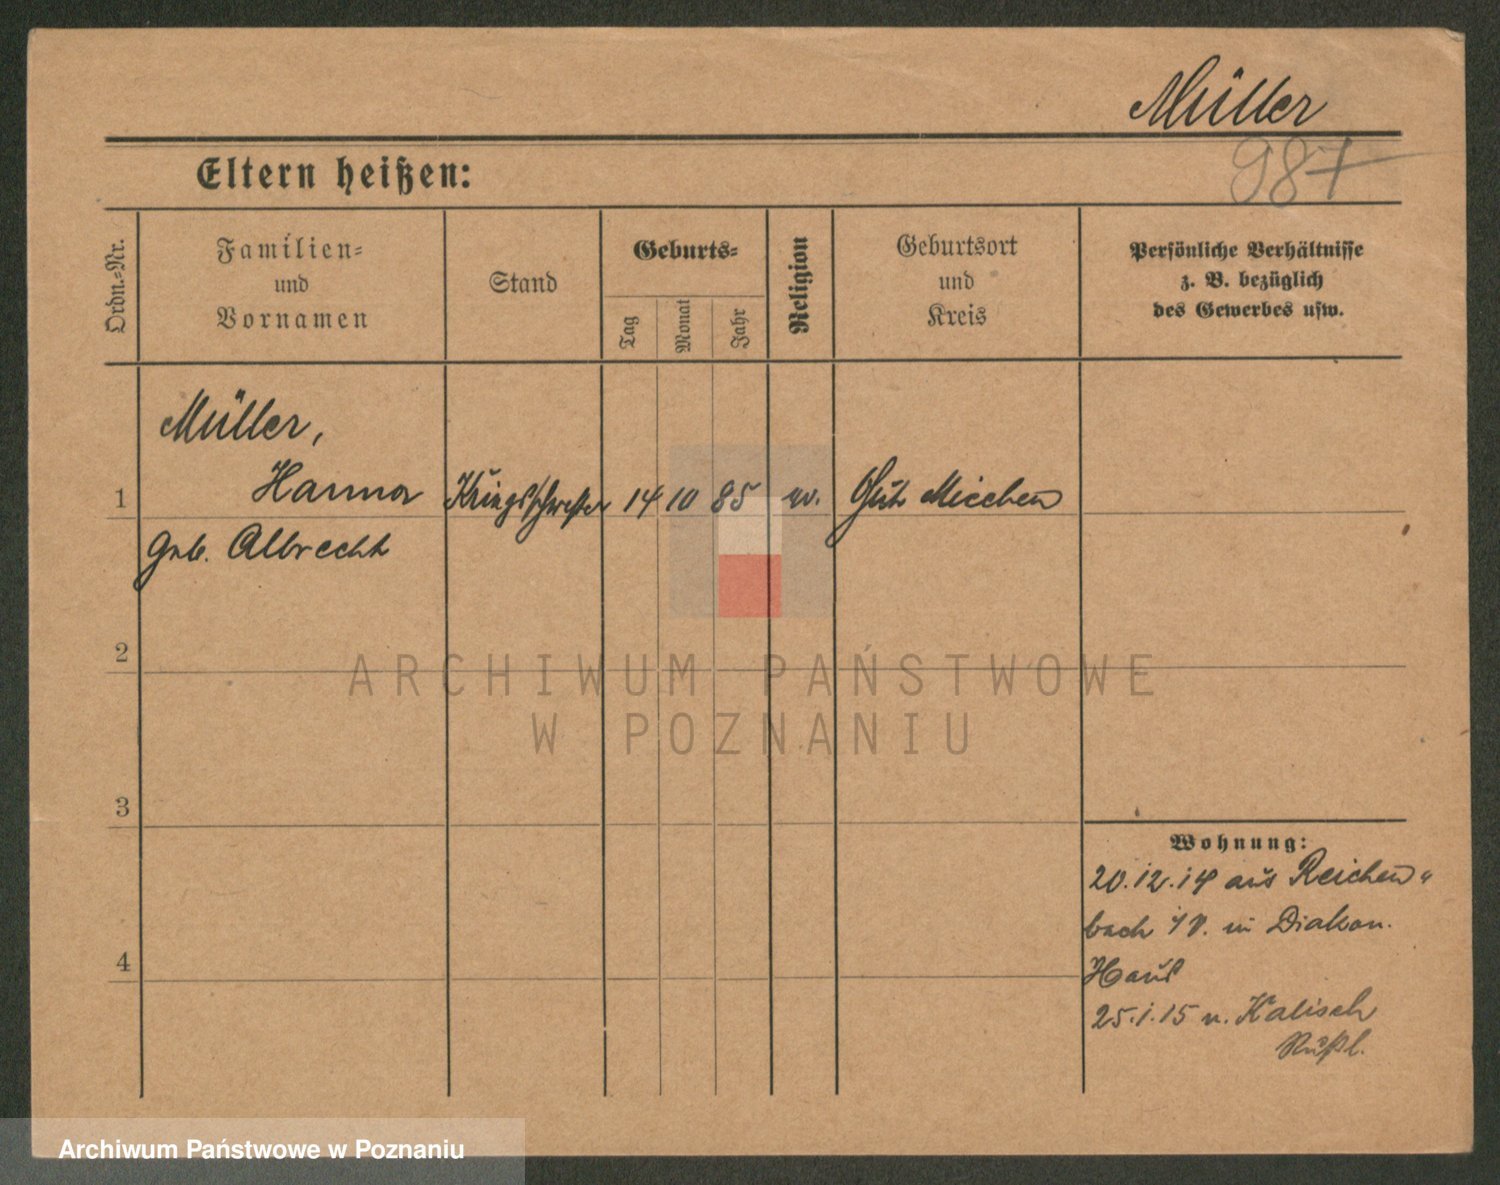 Müller
987
Eltern heißen:
Ordn.-Nr.
Familien-
und
Vornamen
Stand
Geburts-
Tag
Monat
Jahr
Religion
Geburtsort
und
Kreis
Persönliche Verhältnisse
z. B. bezüglich
des Gewerbes usw.
Müller,
1 Hanna Kriegsschwester 14 10 85 ev. Gut Miechen
geb. Albrecht
2
ARCHIWUM PAŃSTWOWE
W POZNANIU
3
Wohnung:
20.12.14 aus Reichen-
bach in Diakon.
4
Haus
25.1.15 n. Kalisch
Rußl.
Archiwum Państwowe w Poznaniu